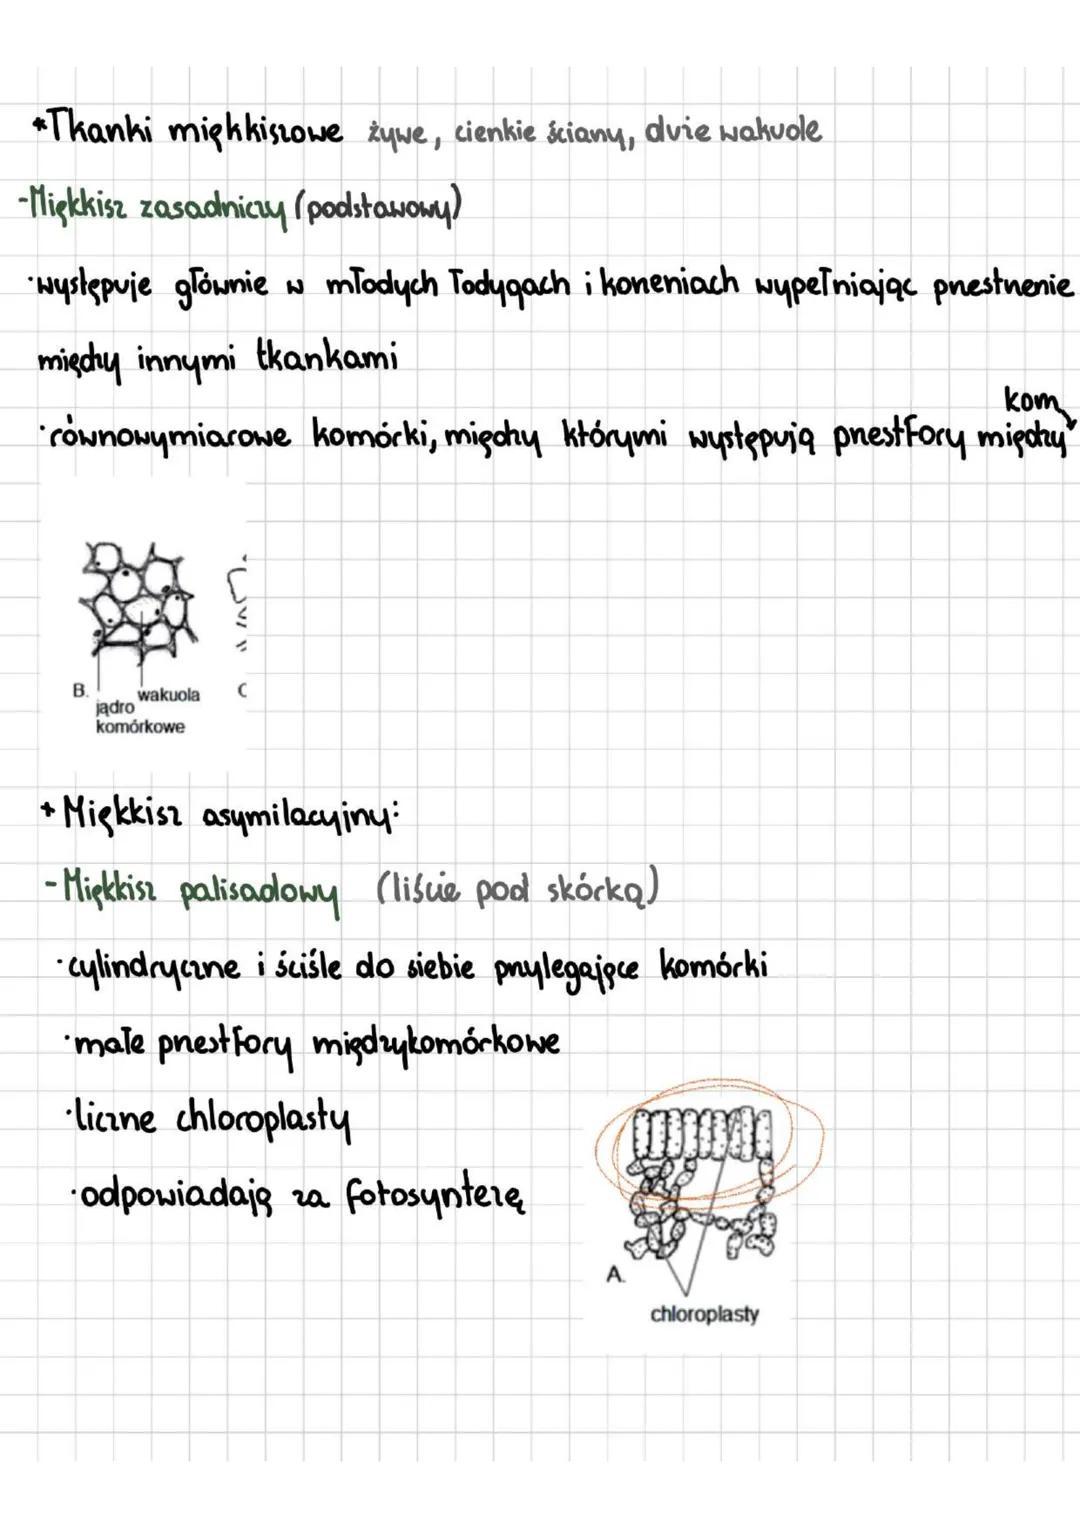 *Tkanki miękkiszowe żywe, cienkie ściany, duże wakuole
-Miękkisz zasadniczy (podstawowy)
·występuje głównie w młodych łodygach i korzeniach wypełniając przestrzenie
między innymi tkankami
kom
·równowymiarowe komórki, między którymi występują przestwory między
B.
wakuola
C
jądro
komórkowe
+ Miękkisz asymilacyjny:
-Miękkisz palisadowy (liście pod skórką)
·cylindryczne i ściśle do siebie przylegające komórki
·małe przestwory międzykomórkowe
·liczne chloroplasty
·odpowiadają za fotosyntezę
A.
chloroplasty